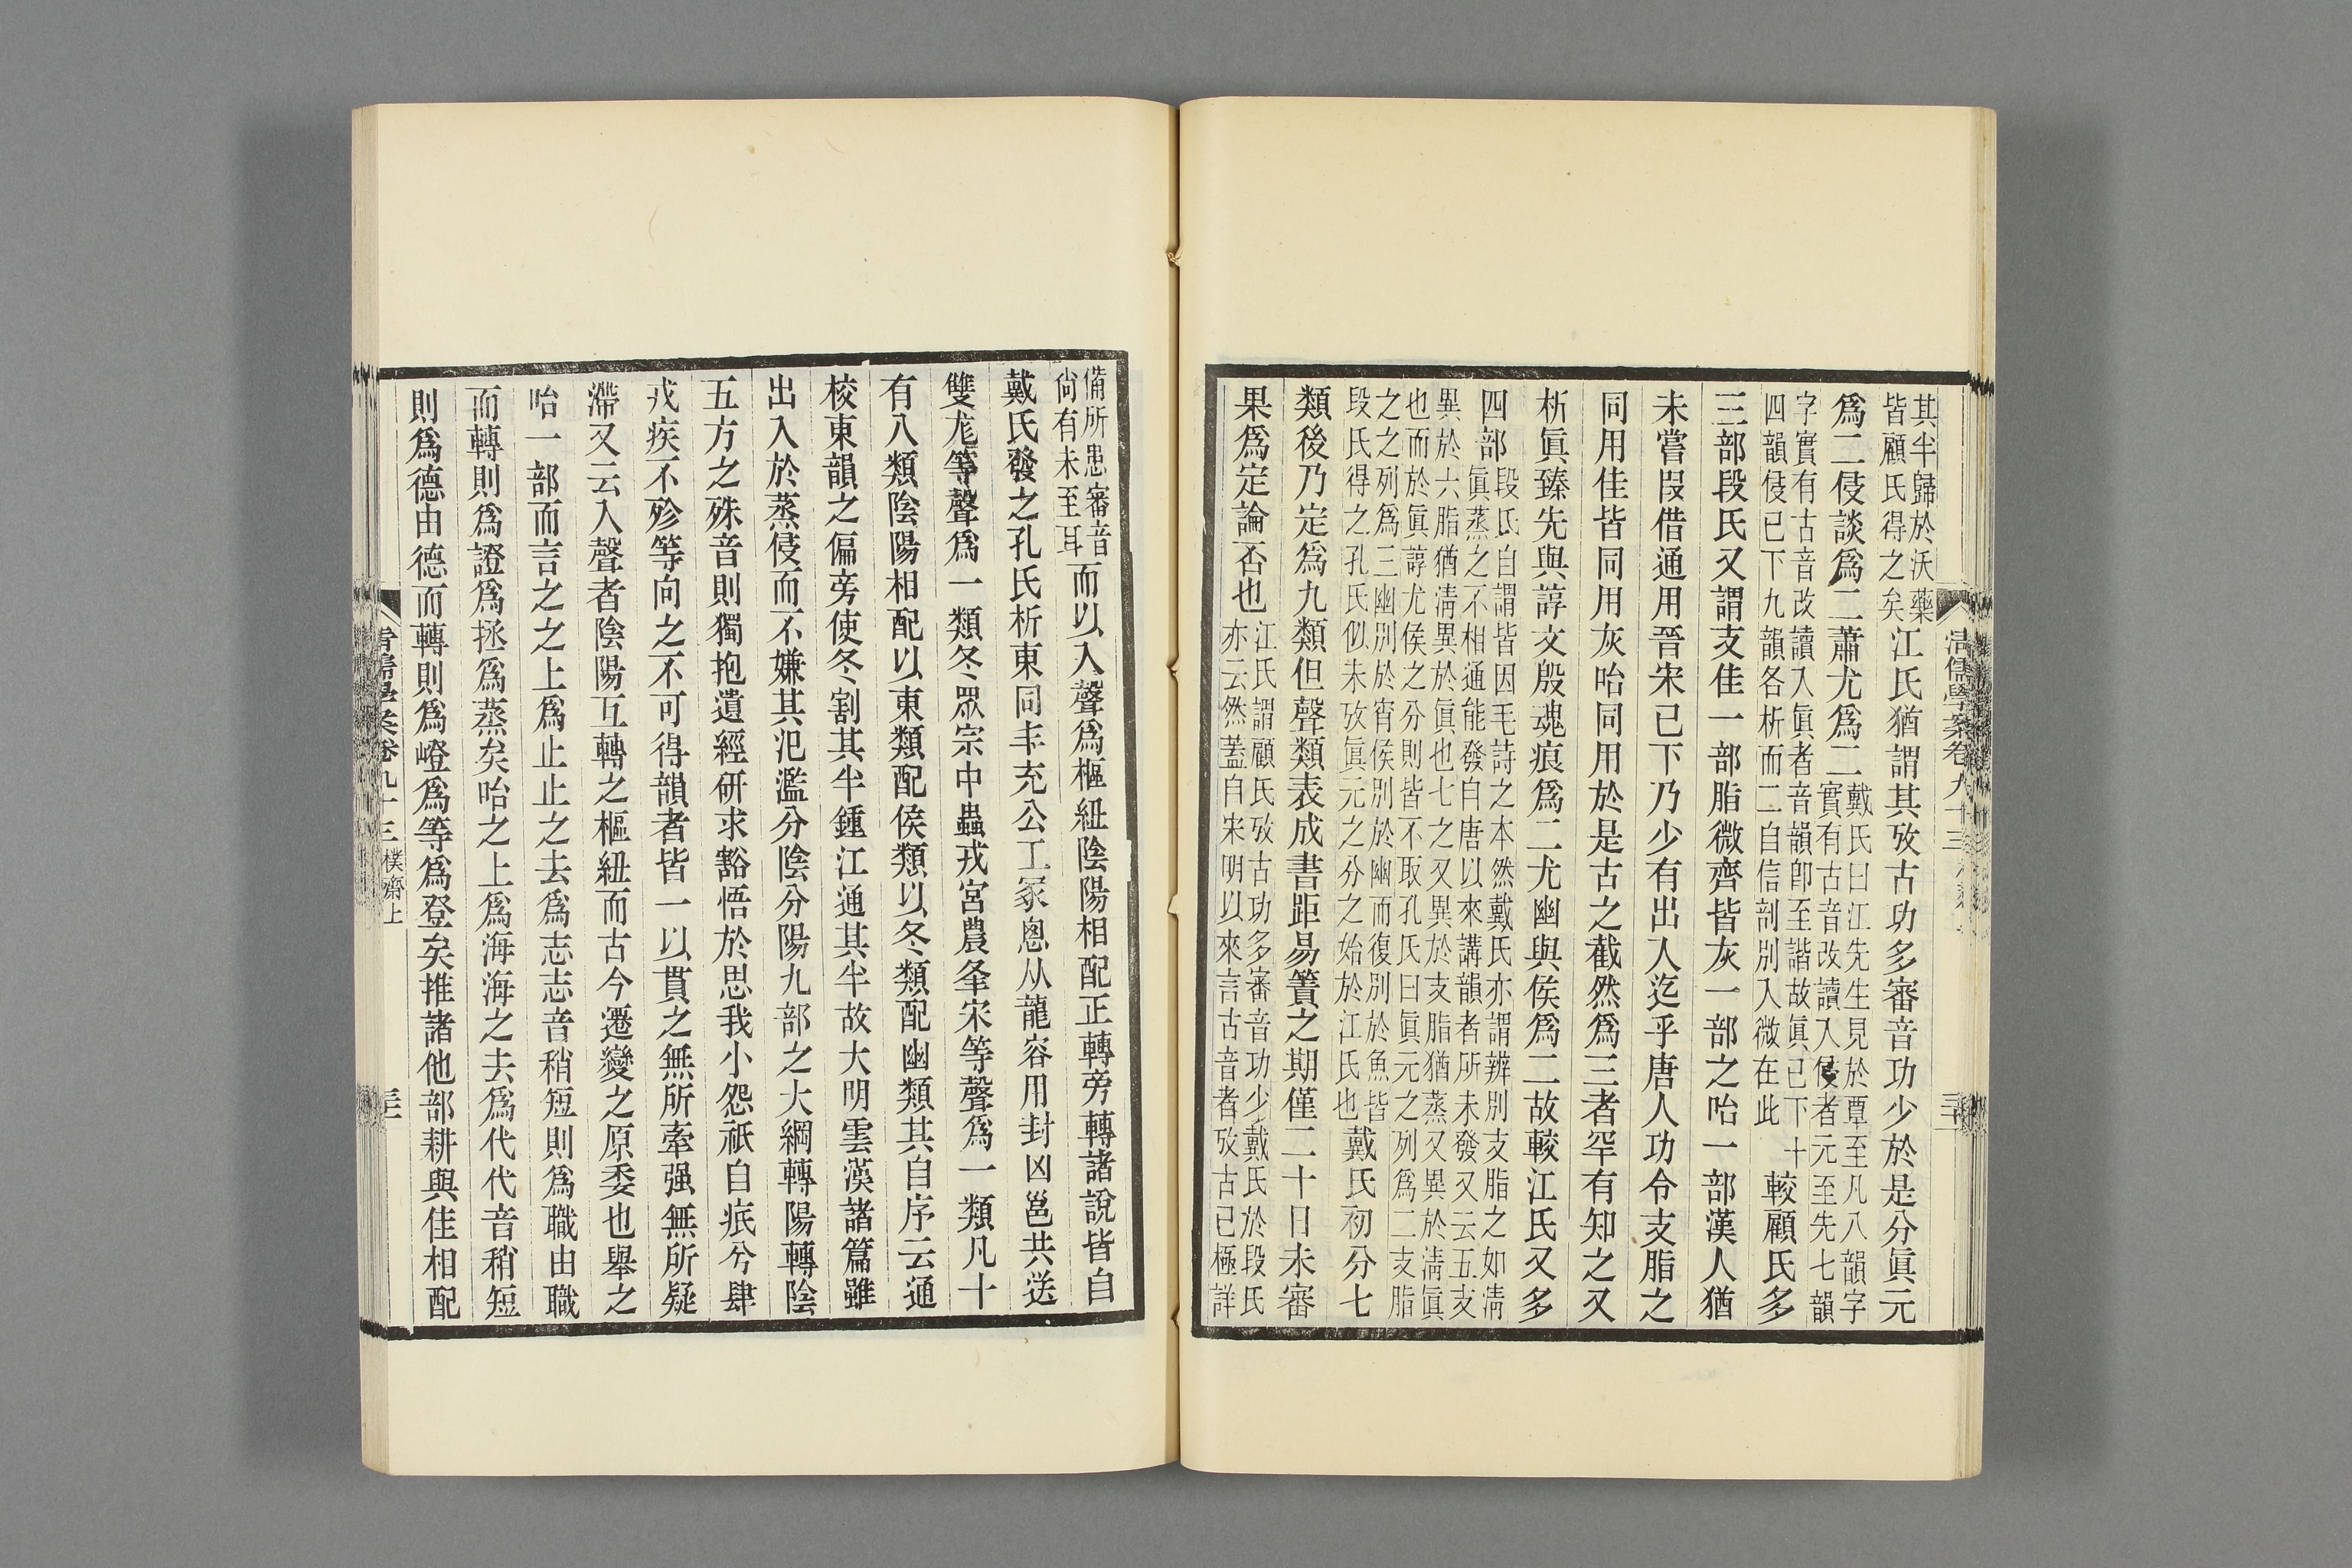 清儒學案卷九十三
其半歸於沃藥
皆顧氏得之矣
江氏猶謂其攷古功多審音功少於是分眞元
爲二侵談爲二蕭尤爲二
戴氏曰江先生見於覃至凡八韻字
實有古音改讀入侵者元至先七韻
字實有古音改讀入眞者音韻卽至諧故眞已下十
四韻侵已下九韻各析而二自信剖別入微在此
較顧氏多
三部段氏又謂支佳一部脂微齊皆灰一部之咍一部漢人猶
未嘗叚借通用晉宋已下乃少有出入迄乎唐人功令支脂之
同用佳皆同用灰咍同用於是古之截然爲三者罕有知之又
析眞臻先與諄文殷魂痕爲二尤幽與侯爲二故較江氏又多
四部
段氏自謂皆因毛詩之本然戴氏亦謂辨別支脂之如淸
眞蒸之不相通能發自唐以來講韻者所未發又云五支
異於六脂猶淸異於眞也七之又異於支脂猶蒸又異於淸眞
也而於眞諄尤侯之分則皆不取孔氏曰眞元之列爲二支脂
之之列爲三幽別於宵侯別於幽而復別於魚皆
段氏得之孔氏似未攷眞元之分之始於江氏也
戴氏初分七
類後乃定爲九類但聲類表成書距易簀之期僅二十日未審
果爲定論否也
江氏謂顧氏攷古功多審音功少戴氏於段氏
亦云然蓋自宋明以來言古音者攷古已極詳
備所患審音
尙有未至耳
而以入聲爲樞紐陰陽相配正轉旁轉諸說皆自
戴氏發之孔氏析東同丰充公工冢恩从龍容用封凶邕共送
雙尨等聲爲一類冬眾宗中蟲戎宮農夅宋等聲爲一類凡十
有八類陰陽相配以東類配侯類以冬類配幽類其自序云通
校東韻之偏旁使冬割其半鍾江通其半故大明雲漢諸篇雖
出入於蒸侵而不嫌其氾濫分陰分陽九部之大綱轉陽轉陰
五方之殊音則獨抱遺經研求豁悟於思我小怨祇自疧兮肆
戎疾不殄等向之不可得韻者皆一以貫之無所牽强無所疑
滯又云入聲者陰陽互轉之樞紐而古今遷變之原委也舉之
咍一部而言之之上爲止止之去爲志志音稍短則爲職由職
而轉則爲證爲拯爲蒸矣咍之上爲海海之去爲代代音稍短
則爲德由德而轉則爲嶝爲等爲登矣推諸他部耕與佳相配
清儒學案卷九十三 樸齋上